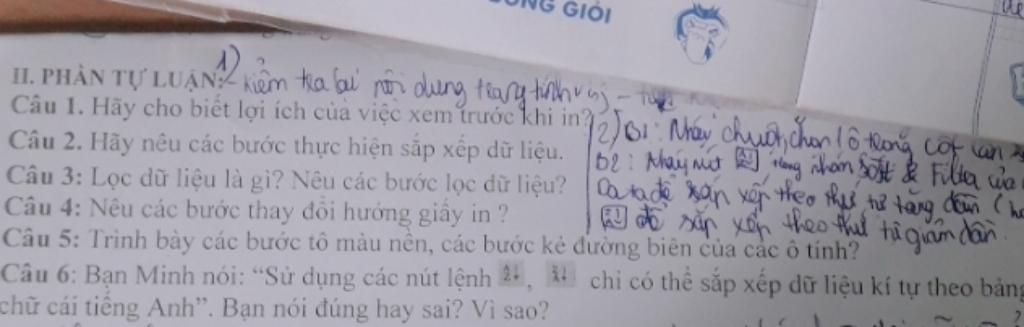 ÔNG GIỎI
II. PHẦN TỰ LUẬN:
1) - kiểm tra lại nội dung trang tính
Câu 1. Hãy cho biết lợi ích của việc xem trước khi in?
2) B1: Nháy chuột, chọn 1 ô trong cột cần
Câu 2. Hãy nêu các bước thực hiện sắp xếp dữ liệu.
B2: Nháy nút trong nhóm Sort & Filter của
Câu 3: Lọc dữ liệu là gì? Nêu các bước lọc dữ liệu?
Data để sắp xếp theo thứ tự tăng dần
Câu 4: Nêu các bước thay đổi hướng giấy in ?
để sắp xếp theo thứ tự giảm dần.
Câu 5: Trình bày các bước tô màu nền, các bước kẻ đường biên của các ô tính?
Câu 6: Bạn Minh nói: “Sử dụng các nút lệnh , chỉ có thể sắp xếp dữ liệu kí tự theo bảng
chữ cái tiếng Anh”. Bạn nói đúng hay sai? Vì sao?